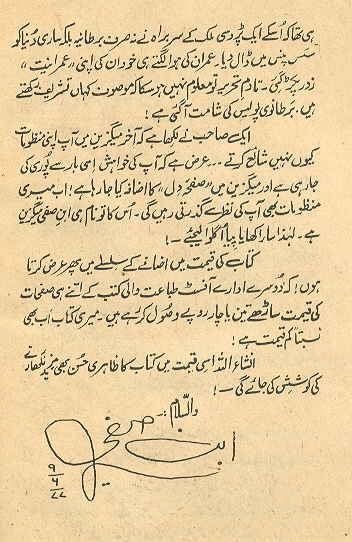 ہی تھا کہ اُسکے ایک پڑوسی ملک کے سربراہ نے نہ صرف برطانیہ بلکہ ساری دُنیا کو
سس پنس میں ڈال دیا۔ عمران کی ہوا لگتے ہی خود ان کی اپنی "عمرانیت"
زور پکڑ گئی۔ تادمِ تحریر تو معلوم نہیں ہو سکا کہ موصوف کہاں تشریف رکھتے
ہیں۔ برطانوی پولیس کی شامت آ گئی ہے!
ایک صاحب نے لکھا ہے کہ آخر میگزین میں آپ اپنی منظومات
کیوں نہیں شائع کرتے۔۔۔ عرض ہے کہ آپ کی خواہش اِسی بار سے پُوری کی
جا رہی ہے اور میگزین میں "صفحۂ دِل" کا اضافہ کیا جا رہا ہے! اب میری
منظومات بھی آپ کی نظر سے گذرتی رہیں گی۔ اُس کا تو نام ہی ابنِ صفی میگزین
ہے۔ لہٰذا سارا کھایا پیا اُگلوا لیجئے۔!
کتاب کی قیمت میں اضافے کے سلسلے میں پھر عرض کرتا
ہوں! کہ دُوسرے ادارے آفسٹ طباعت والی کتب کے اتنے ہی صفحات
کی قیمت ساڑھے تین یا چار روپے وصُول کر رہے ہیں۔ میری کتاب اب بھی
نسبتاً کم قیمت ہے!
انشاء اللہ اسی قیمت میں کتاب کا ظاہری حُسن بھی مزید نکھارنے
کی کوشش کی جائے گی۔!
والسّلام
ابن صفی
۹
۴
۷۷